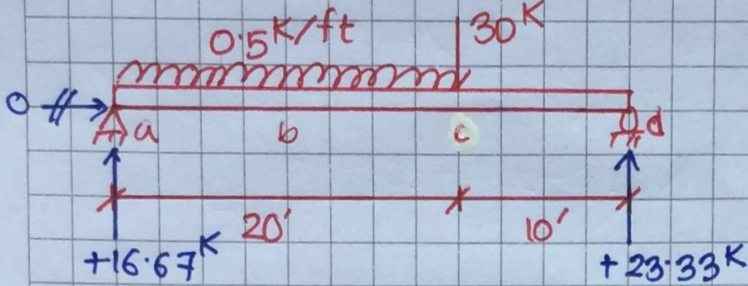 0.5K/ft 30K
0
a b c d
20' 10'
+16.67K +23.33K